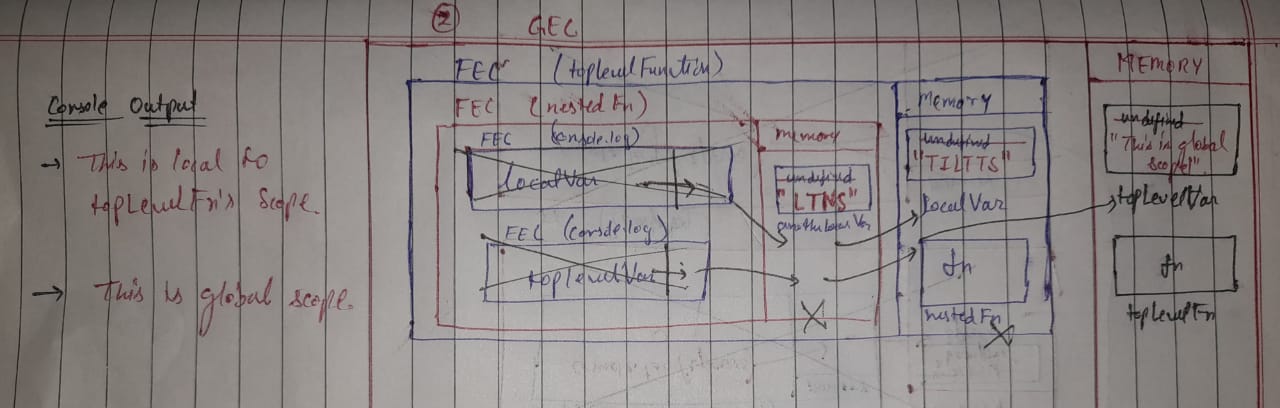 ② GEC
Console Output
→ This is local to
topLevelFn's Scope.
→ This is global scope.
FEC (toplevelFunction)
FEC (nestedFn)
FEC (console.log)
localVar
FEC (console.log)
toplevelVar
memory
undefined
"LTNS"
anotherLocalVar
Memory
undefined
"TILTTS"
localVar
fn
nestedFn
MEMORY
undefined
"This is global
scope!"
topLevelVar
fn
topLevelFn